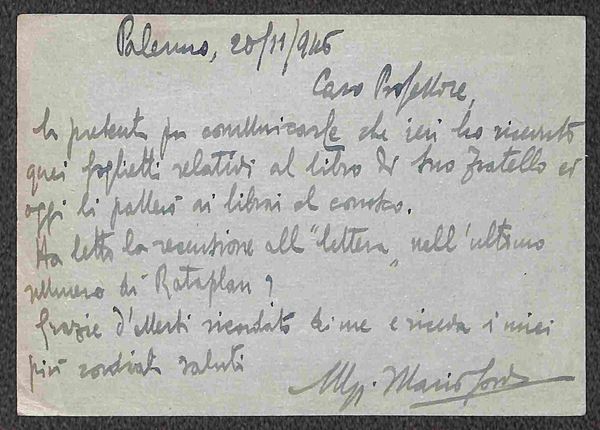 Palermo, 20/11/945
Caro Professore,
la presente per comunicarle che ieri ho ricevuto
quei foglietti relativi al libro di Suo fratello ed
oggi li passerò ai librai che conosco.
Ha letto la recensione all' "lettera" nell'ultimo
numero di Rataplan?
Grazie d'esserti ricordato di me e riceva i miei
più cordiali saluti
Mario